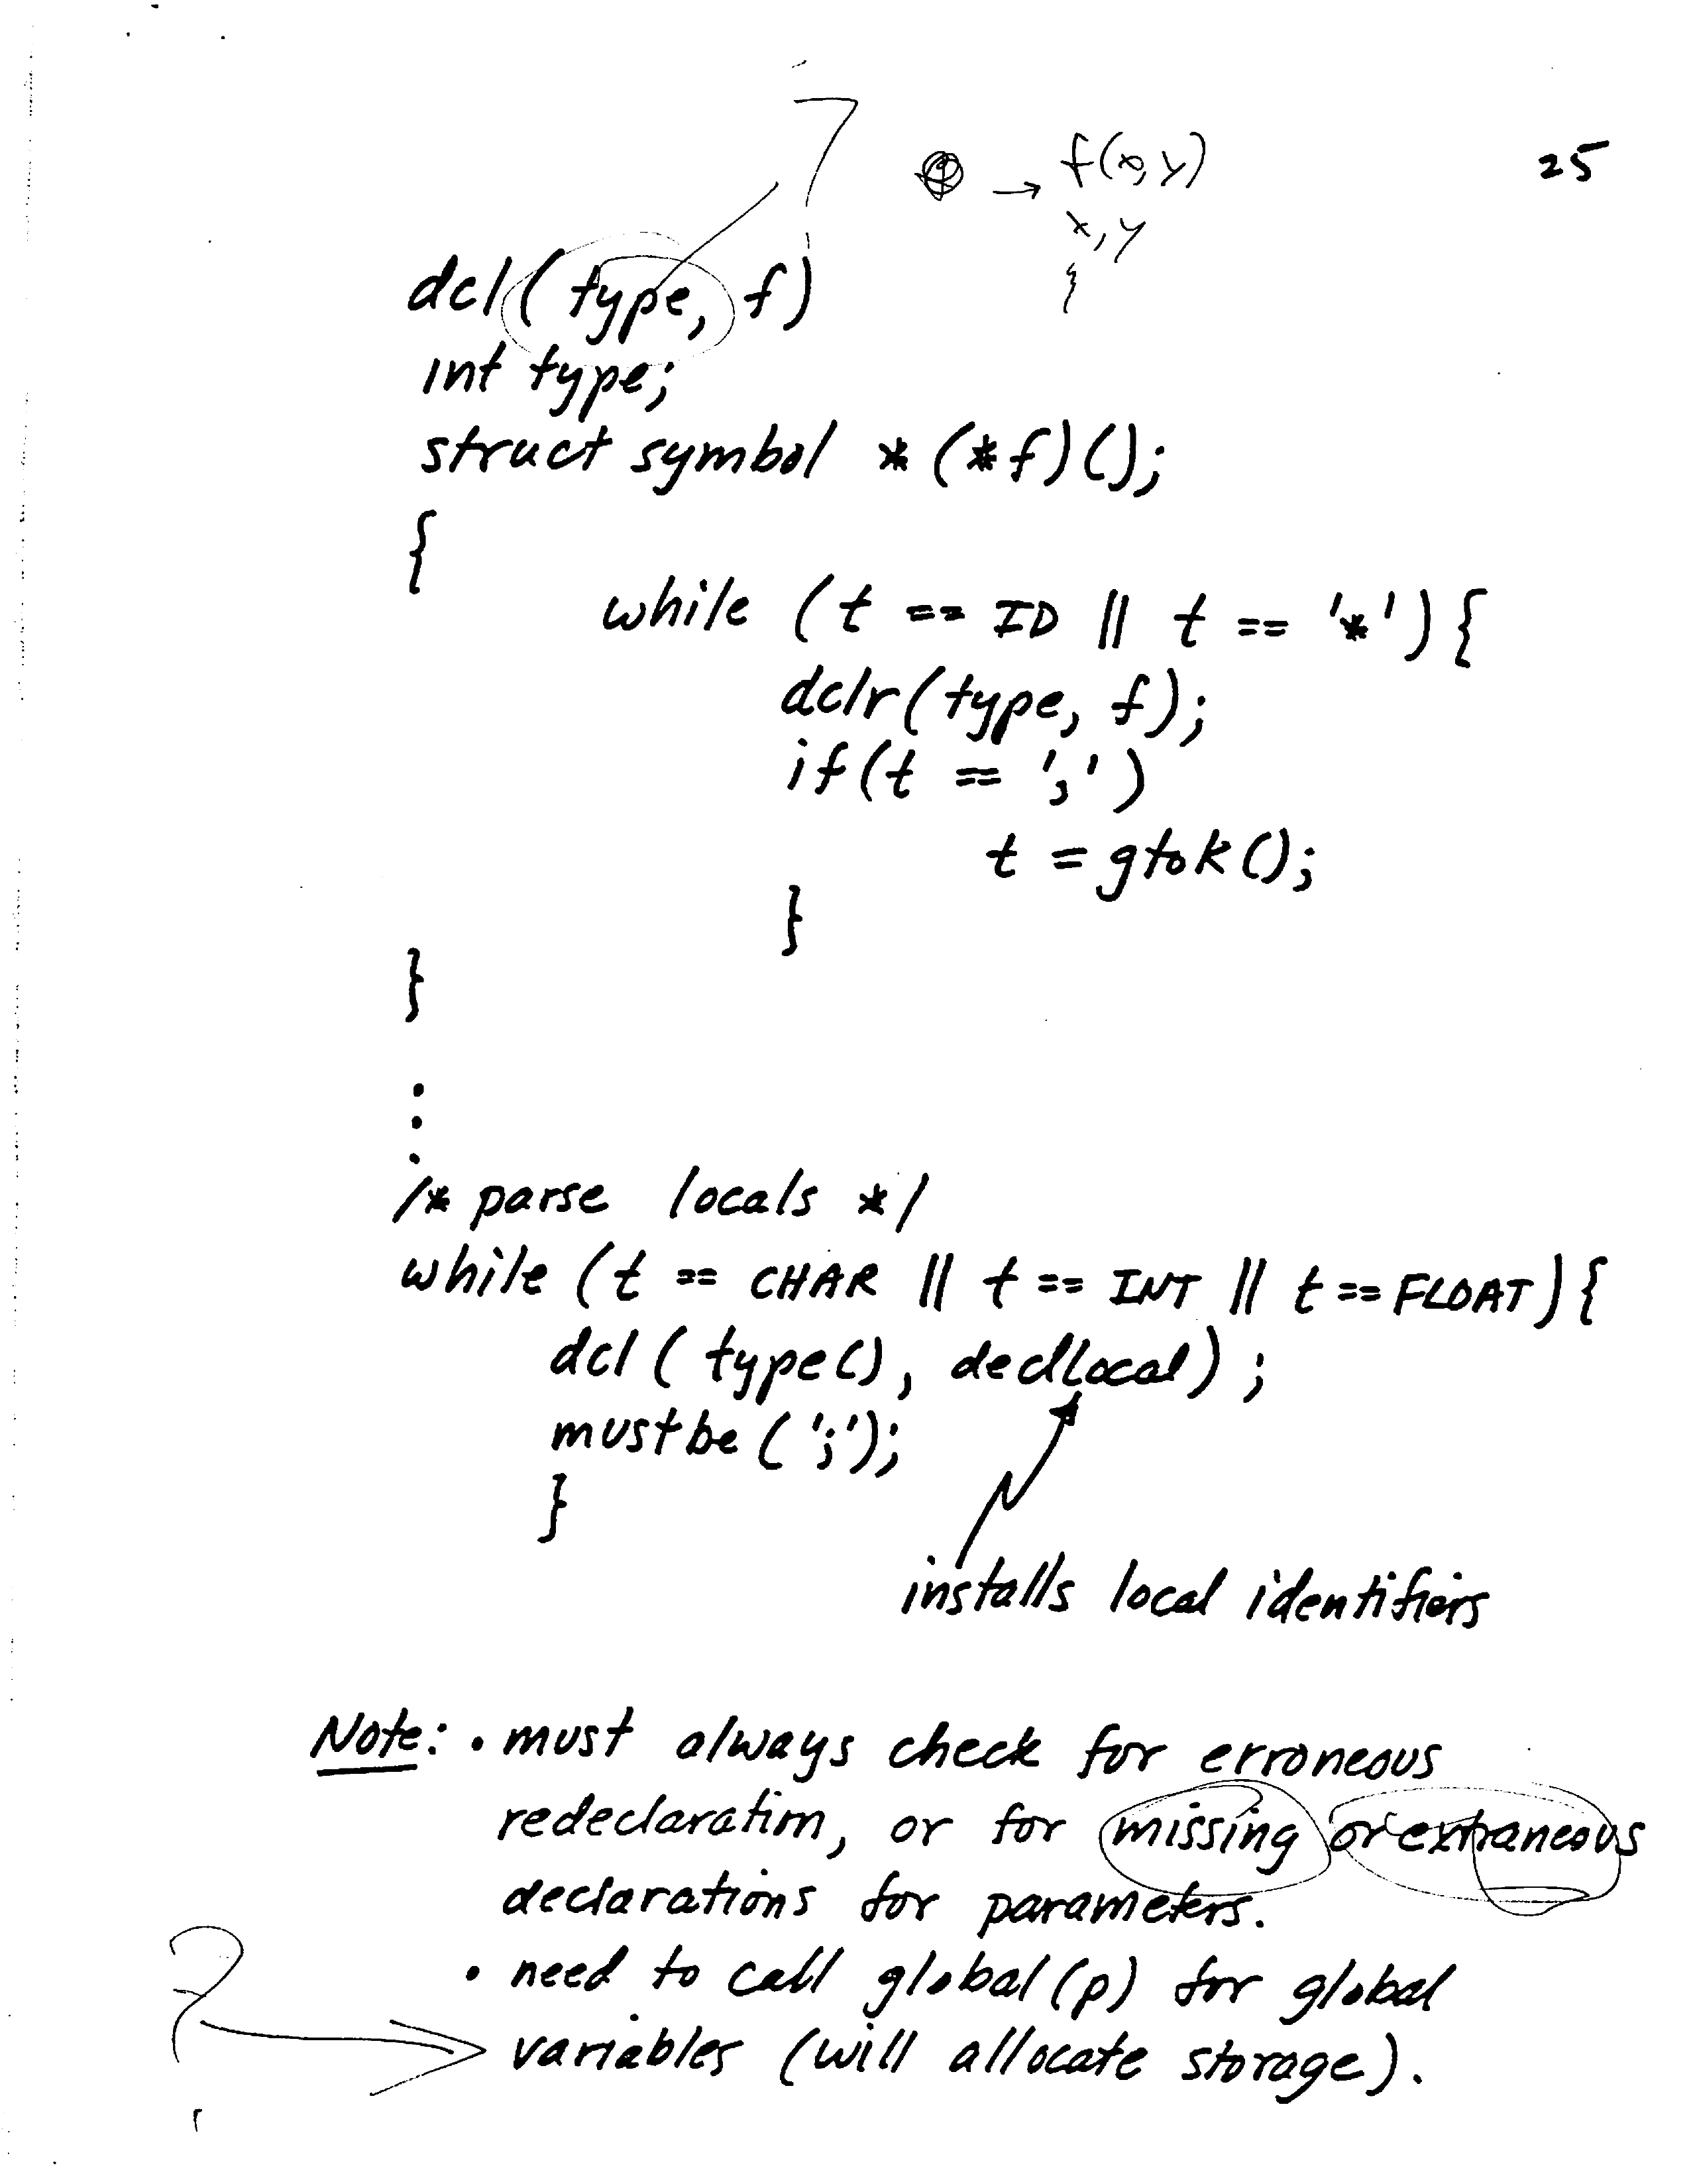 25
→ f(x,y)
x,y
{
dcl(type, f)
int type;
struct symbol *(*f)();
{
while (t == ID || t == '*'){
dclr(type, f);
if(t == ',')
t = gtok();
}
}
:
/* parse locals */
while (t == CHAR || t == INT || t == FLOAT){
dcl(type(), decllocal);
mustbe(';');
}
installs local identifiers
Note: • must always check for erroneous
redeclaration, or for missing or extraneous
declarations for parameters.
• need to call global(p) for global
variables (will allocate storage).